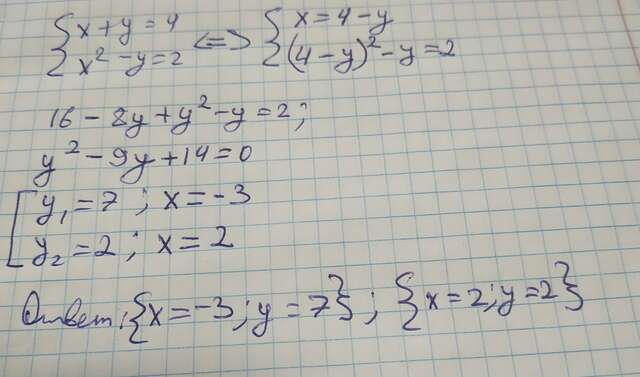 { x + y = 4 <=> { x = 4 - y
{ x² - y = 2 { (4 - y)² - y = 2
16 - 8y + y² - y = 2;
y² - 9y + 14 = 0
[ y₁ = 7 ; x = -3
[ y₂ = 2 ; x = 2
Ответ: {x = -3; y = 7}; {x = 2; y = 2}